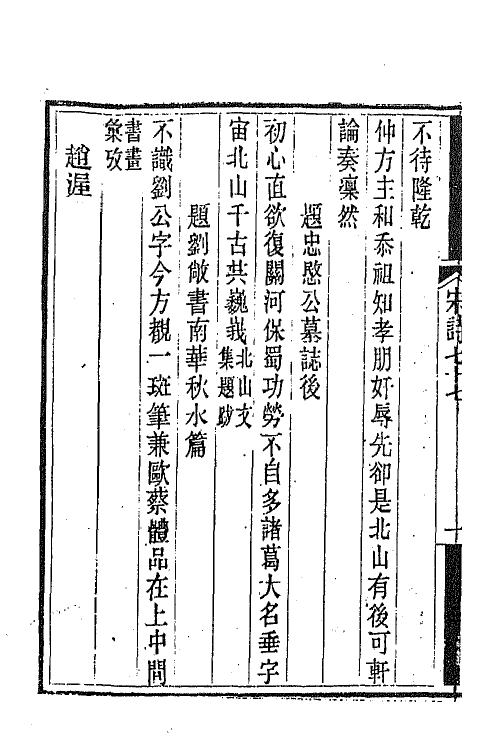 不待隆乾
仲方主和忝祖知孝朋奸辱先卻是北山有後可軒
論奏凜然
題忠愍公墓誌後
初心直欲復關河保蜀功勞不自多諸葛大名垂宇
宙北山千古共巍峩北山文集題跋
題劉敞書南華秋水篇
不識劉公字今方觀一斑筆兼歐蔡體品在上中間
書畫彙攷
趙渥